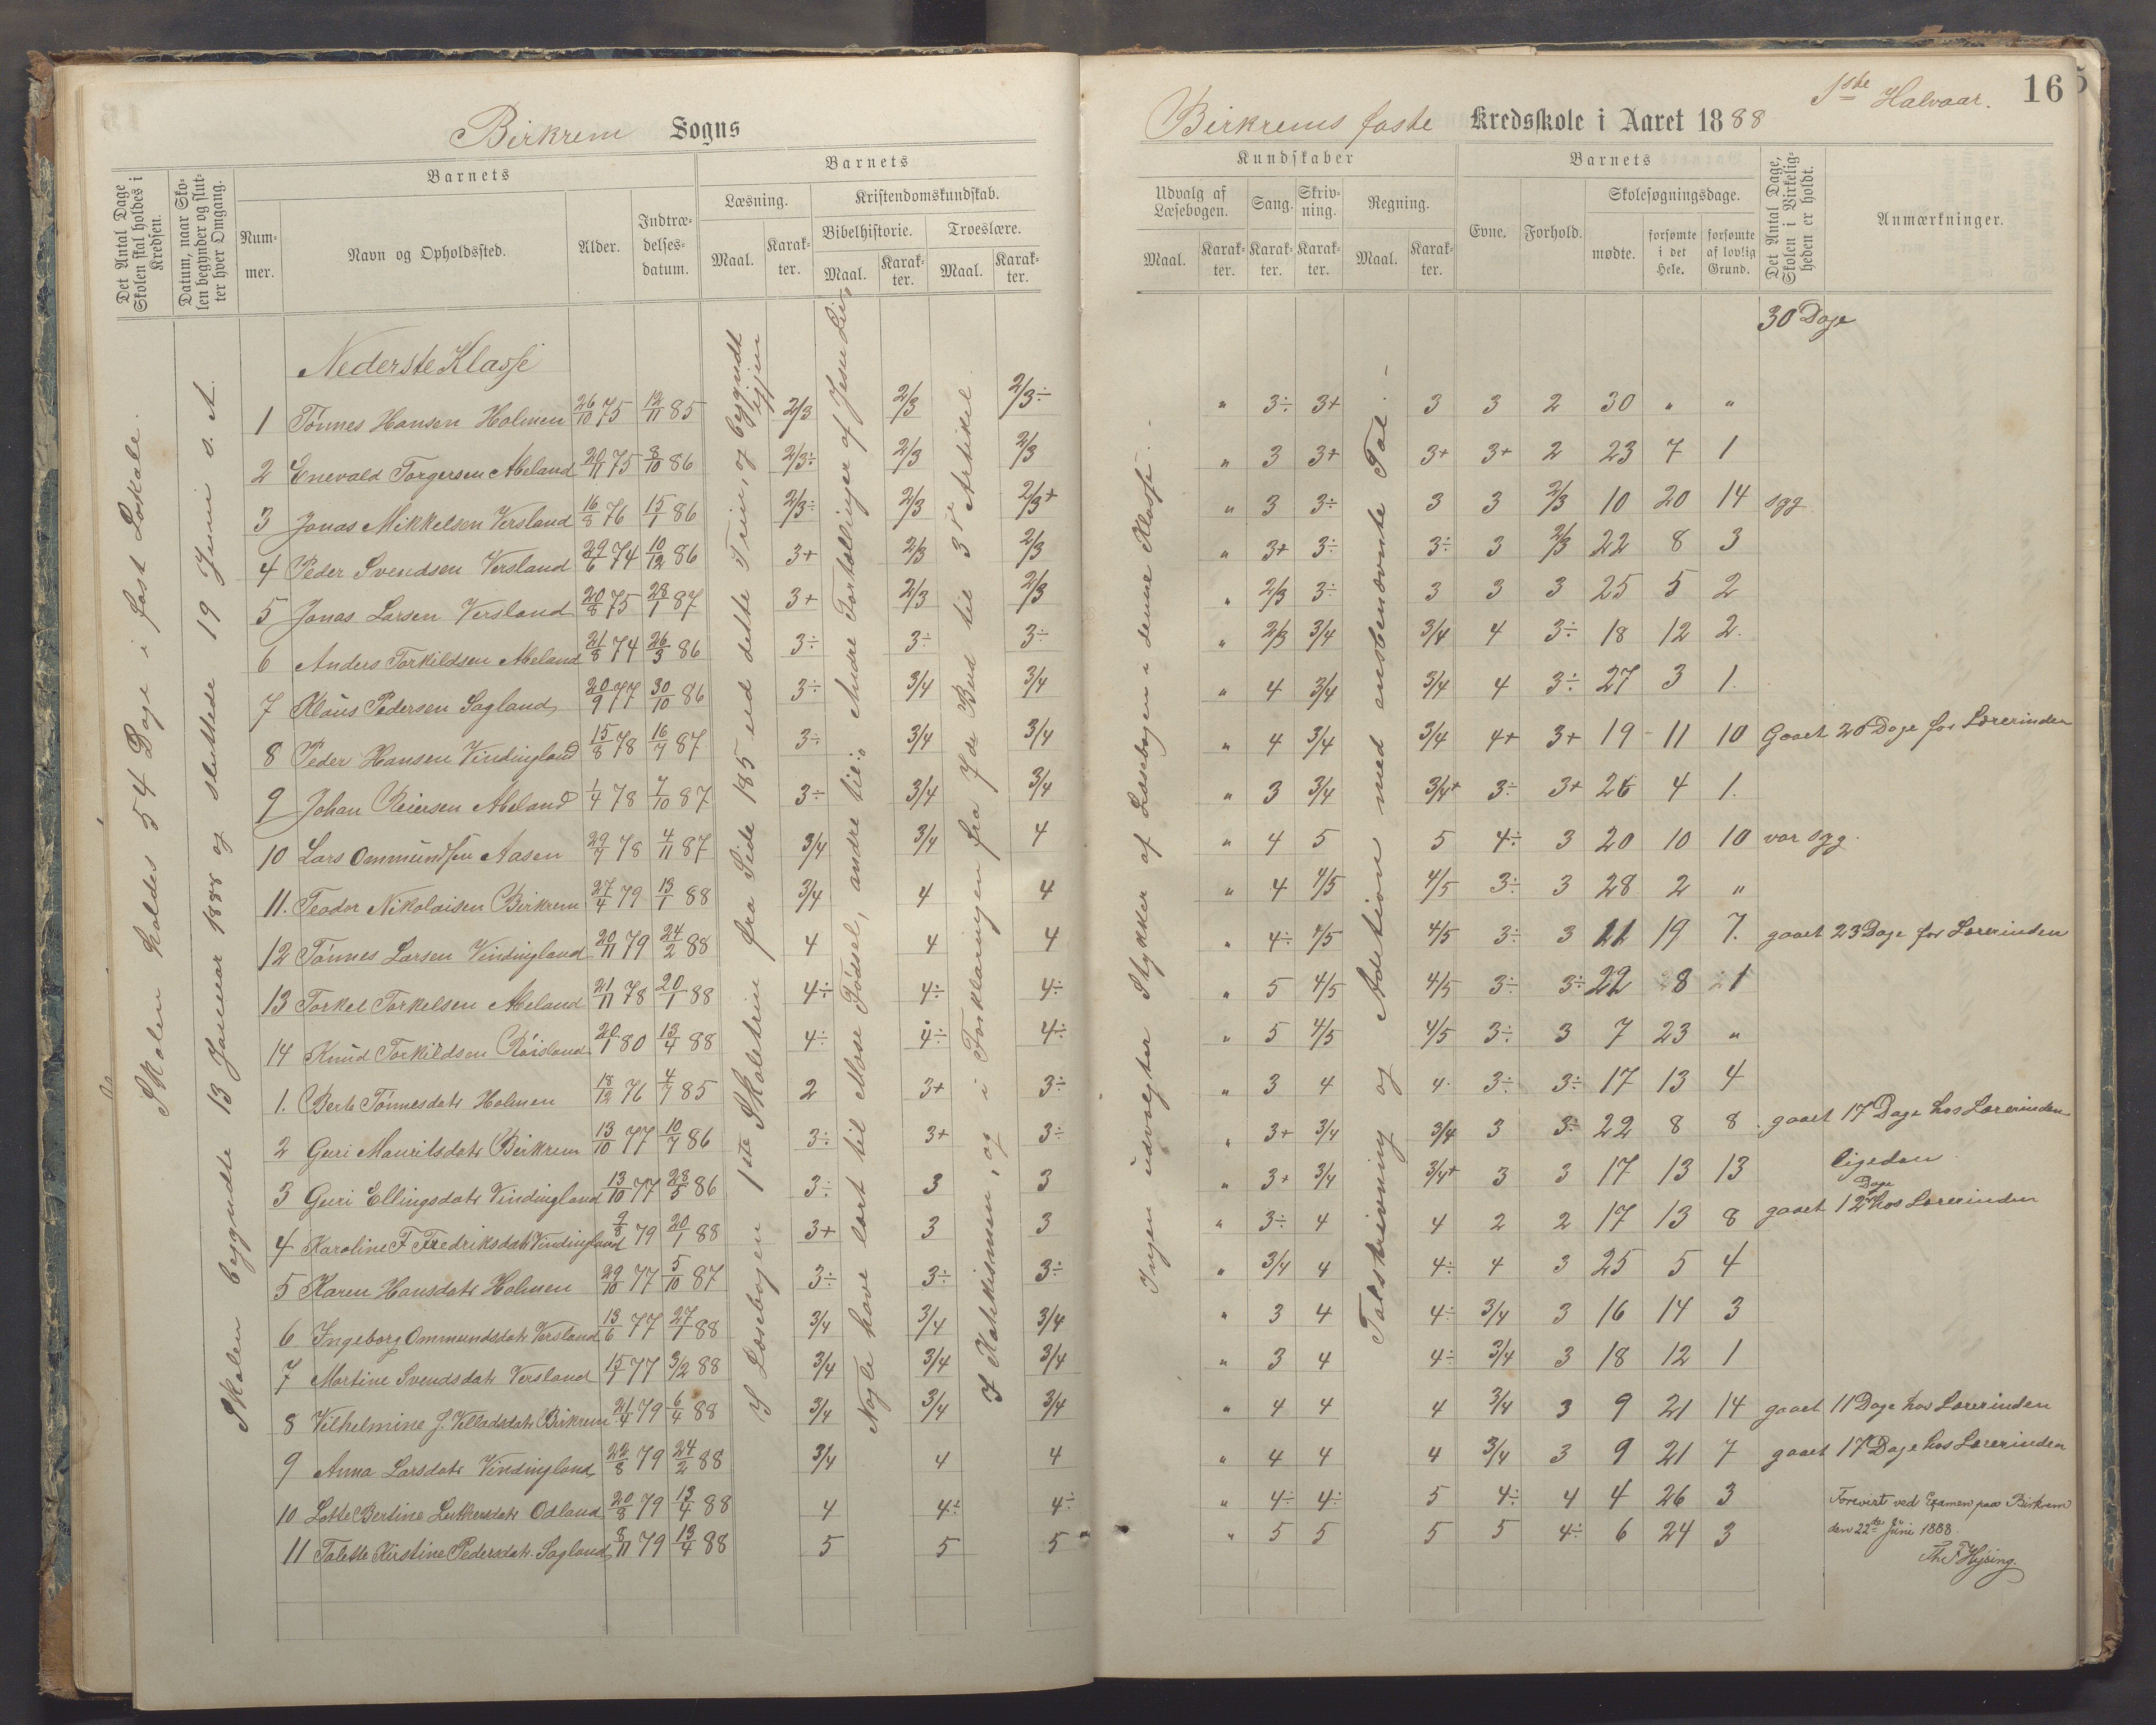 Birkrem Sogns
Birkrems faste Kredsskole i Aaret 1888
1ste Halvaar.
16
5
Det Antal Dage Skolen skal holdes i Kredsen.
Datum, naar Skolen begynder og slutter hver Omgang.
Barnets
Nummer.
Navn og Opholdssted.
Alder.
Indtrædelsesdatum.
Barnets
Læsning.
Maal.
Karakter.
Kristendomskundskab.
Bibelhistorie.
Maal.
Karakter.
Troeslære.
Maal.
Karakter.
Kundskaber
Udvalg af Læsebogen.
Maal.
Karakter.
Sang.
Karakter.
Skrivning.
Karakter.
Regning.
Maal.
Karakter.
Barnets
Evne.
Forhold.
Skolesøgningsdage.
mødte.
forsømte i det Hele.
forsømte af lovlig Grund.
Det Antal Dage, Skolen i Virkeligheden er holdt.
Anmærkninger.
Skolen holdes 54 Dage i fast Lokale.
Skolen begyndte 13 Januar 1888 og sluttede 19 Juni s. A.
I Læsebogen 1ste Skoletrin fra Side 185 ud dette Trin, og begyndt igjen
Nogle have lært til Mose Fødsel, andre til: Andre Fortællinger af Jesu Liv
I Katekismen, og i Forklaringen fra 7de Bud til 3die Artikel.
Ingen udvalgter Stykker af Læsebogen i denne Klasse.
Talskrivning og Addition med ensbenævnte Tal.
30 Dage
Nederste Klasse
1 Tønnes Hansen Holmen 26/10 75 12/11 85 2/3 2/3 2/3÷ " 3÷ 3+ 3 3 2 30 " "
2 Enevald Torgersen Abeland 20/11 75 8/10 86 2/3÷ 2/3 2/3 " 3 3+ 3+ 3+ 2 23 7 1
3 Jonas Mikkelsen Versland 16/8 76 15/1 86 2/3÷ 2/3 2/3+ " 3 3÷ 3 3 2/3 10 20 14 syg
4 Peder Svendsen Versland 29/6 74 10/12 86 3+ 2/3 2/3 " 3+ 3÷ 3÷ 3 2/3 22 8 3
5 Jonas Larsen Versland 20/8 75 28/1 87 3+ 2/3 2/3 " 2/3 3÷ 3 3 3 25 5 2
6 Anders Torkildsen Abeland 21/8 74 26/3 86 3÷ 3÷ 3÷ " 2/3 3/4 3/4 4 3÷ 18 12 2.
7 Klaus Pedersen Sagland 20/9 77 30/10 86 3÷ 3/4 3/4 " 4 3/4 3/4 4 3÷ 27 3 1.
8 Peder Hansen Vindingland 15/8 78 16/7 87 3÷ 3/4 3/4 " 4 3/4 3/4 4+ 3+ 19 11 10 Gaaet 20 Dage for Lærerinden
9 Johan Reiersen Abeland 1/4 78 7/10 87 3÷ 3/4 3/4 " 3 3/4 3/4+ 3÷ 3+ 26 4 1.
10 Lars Ommundsen Aasen 29/7 78 4/11 87 3/4 3/4 4 " 4 5 5 4÷ 3 20 10 10 var syg.
11. Teodor Nikolaisen Birkrem 27/4 79 13/1 88 3/4 4 4 " 4 4/5 4/5 3÷ 3 28 2 "
12 Tønnes Larsen Vindingland 20/11 79 24/2 88 4 4 4 " 4÷ 4/5 4/5 3÷ 3 11 19 7. gaaet 23 Dage for Lærerinden
13 Torkel Torkelsen Abeland 21/11 78 20/1 88 4÷ 4÷ 4÷ " 5 4/5 4/5 3÷ 3÷ 22 8 1
14 Knud Torkildsen Røisland 20/1 80 13/4 88 4÷ 4÷ 4÷ " 5 4/5 4/5 3÷ 3 7 23 "
1. Berte Tønnesdatr Holmen 18/12 76 4/7 85 2 3+ 3÷ " 3 4 4 3÷ 3÷ 17 13 4
2 Guri Mauritsdatr Birkrem 13/10 77 10/7 86 3÷ 3+ 3÷ " 3+ 3/4 3/4 3 3÷ 22 8 8 gaaet 17 Dage hos Lærerinden
3 Guri Ellingsdatr Vindingland 13/10 77 28/5 86 3÷ 3 3 " 3+ 3/4 3/4+ 3 3 17 13 13 ligedan
4 Karoline F Fredriksdatr Vindingland 9/8 79 20/1 88 3+ 3 3 " 3÷ 4 4 2 2 17 13 8 gaaet 12 Dage hos Lærerinden
5 Karen Hansdatr Holmen 29/10 77 5/10 87 3÷ 3÷ 3÷ " 3/4 4 4÷ 4 3 25 5 4
6 Ingeborg Ommundsdatr Versland 13/6 77 27/1 88 3/4 3/4 3/4 " 3 4 4÷ 3/4 3 16 14 3
7 Martine Svendsdatr Versland 15/7 77 3/2 88 3/4 3/4 3/4 " 3 4 4÷ 3/4 3 18 12 1
8 Vilhelmine J. Velladsdatr Birkrem 21/4 79 6/4 88 3/4 3/4 3/4 " 4 4 4 3/4 3 9 21 14 gaaet 11 Dage hos Lærerinden
9 Anna Larsdatr Vindingland 22/8 79 24/2 88 3/4 4 4 " 4 4 4 3/4 3 9 21 7 gaaet 17 Dage hos Lærerinden
10 Lotte Bertine Luthersdatr Odland 20/8 79 13/4 88 4 4÷ 4÷ " 4÷ 4÷ 5 4÷ 4 4 26 3
11 Talette Kirstine Pedersdatr Sagland 8/11 79 13/4 88 5 5 5 " 5 5 5 5 4÷ 6 24 3
Forevist ved Examen paa Birkrem
den 22de Juni 1888.
Th. F Hysing.